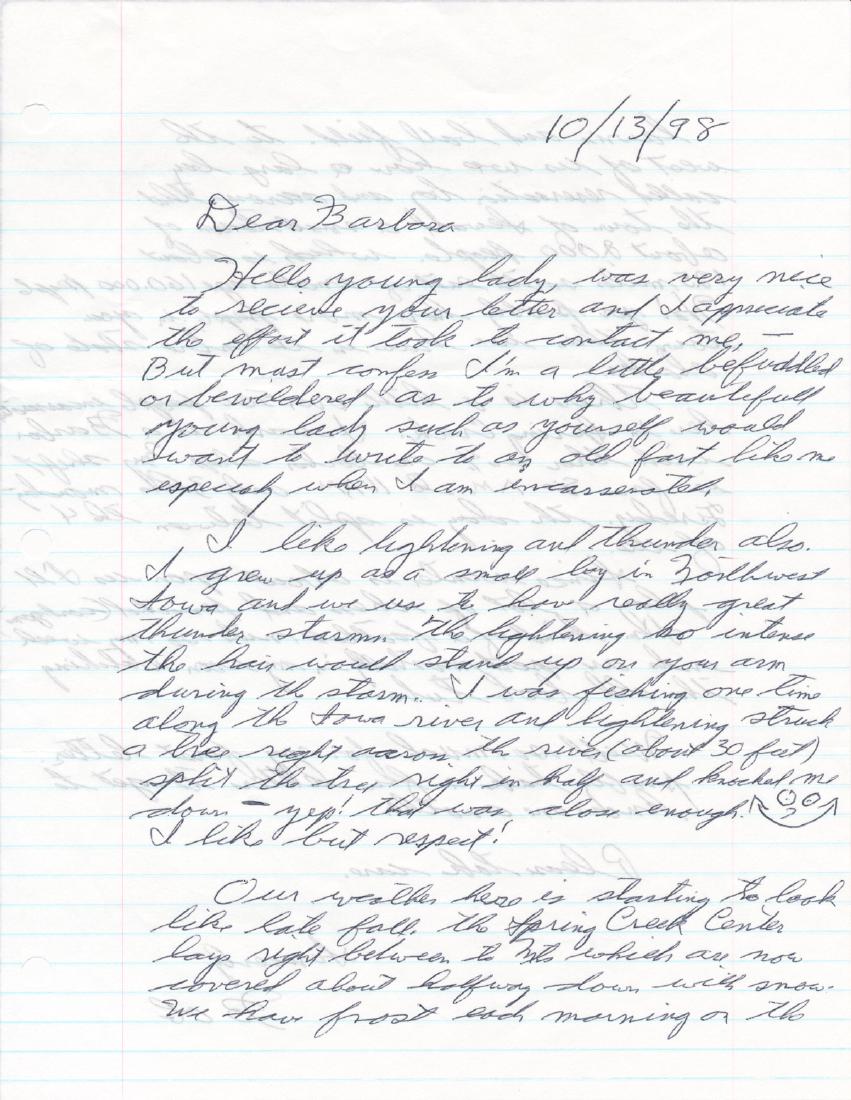 10/13/98
Dear Barbara
Hello young lady, was very nice
to recieve your letter and I appreciate
the effort it took to contact me. —
But must confess I'm a little befuddled
or bewildered as to why beautifull
young lady such as yourself would
want to write to an old fart like me
especialy when I am incarserated.
I like lightening and thunder also.
I grew up as a small boy in Northwest
Iowa and we us to have really great
thunder storms. The lightening so intense
the hair would stand up on your arm
during the storm.. I was fishing one time
along the Iowa river and lightening struck
a tree right across the river (about 30 feet)
split the tree right in half and knocked me
down – yep! that was close enough!
I like but respect!
Our weather here is starting to look
like late fall. The Spring Creek Center
lays right between to Mts which are now
covered about halfway down with snow.
We have frost each morning on the